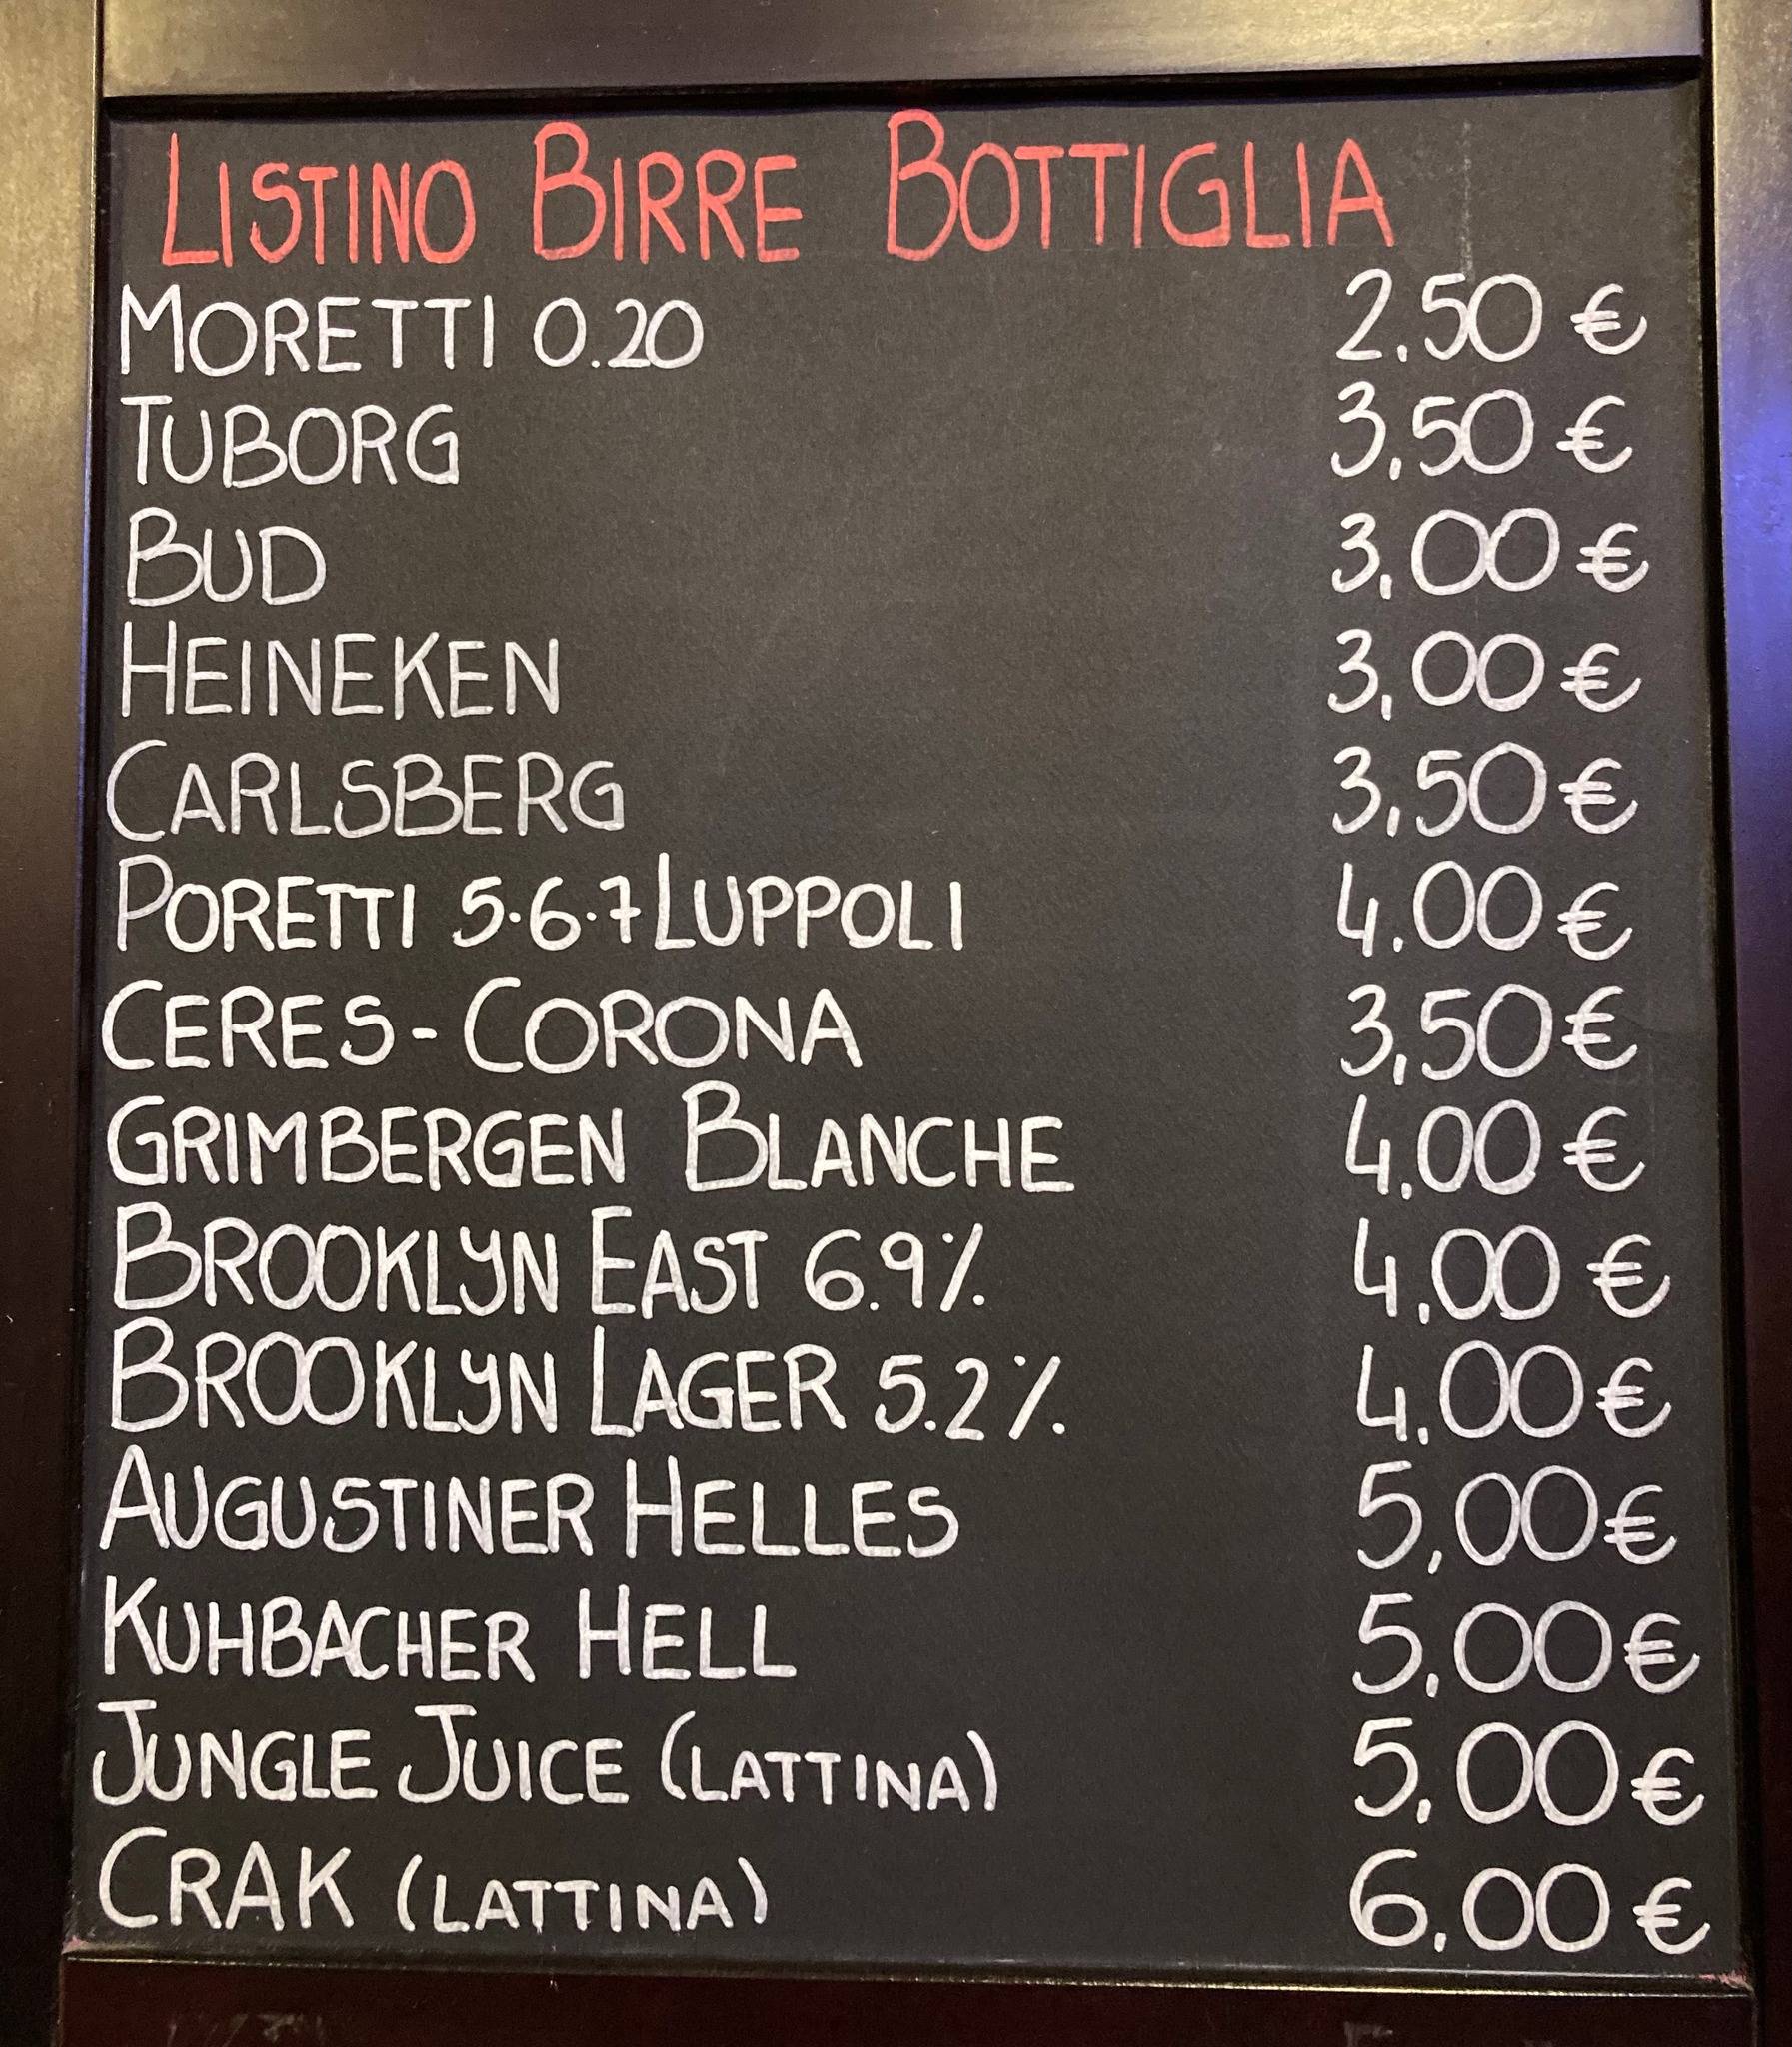 LISTINO BIRRE BOTTIGLIA
MORETTI 0.20 2.50 €
TUBORG 3,50 €
BUD 3,00 €
HEINEKEN 3,00 €
CARLSBERG 3,50 €
PORETTI 5·6·7 LUPPOLI 4.00 €
CERES - CORONA 3,50 €
GRIMBERGEN BLANCHE 4,00 €
BROOKLYN EAST 6.9% 4,00 €
BROOKLYN LAGER 5.2% 4,00 €
AUGUSTINER HELLES 5,00 €
KUHBACHER HELL 5,00 €
JUNGLE JUICE (LATTINA) 5,00 €
CRAK (LATTINA) 6,00 €